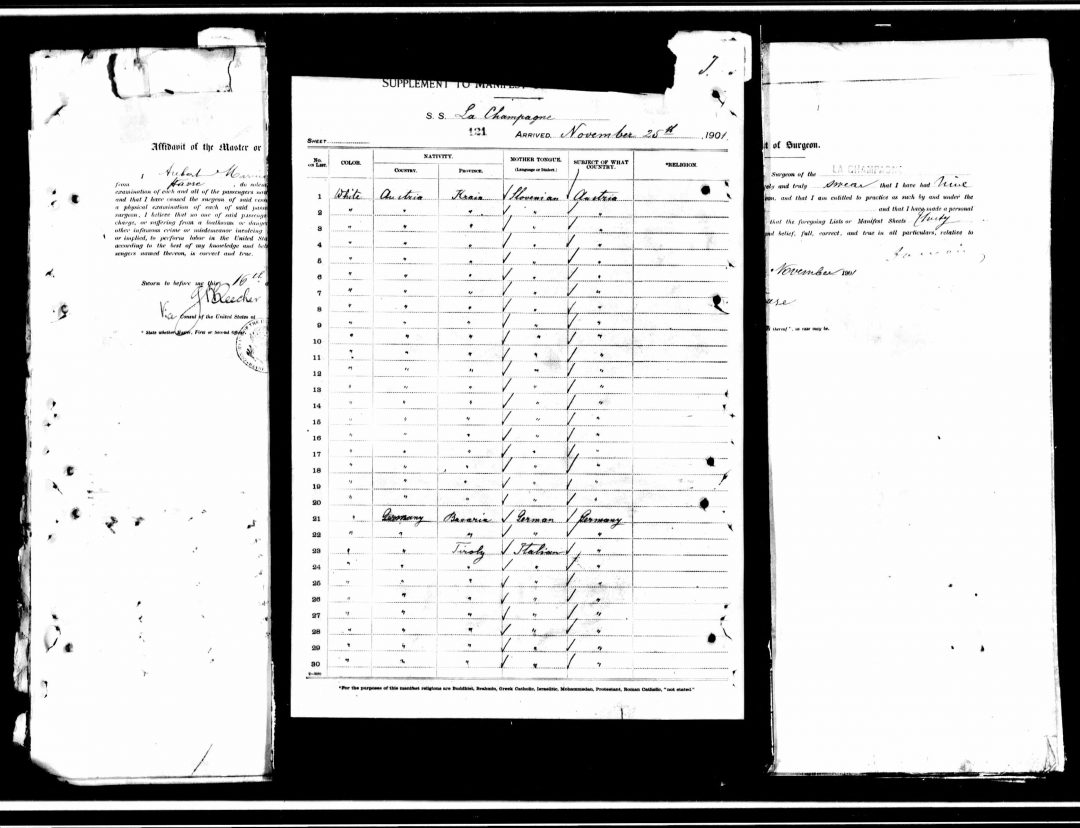 Affidavit of the Master or
I, Aubert
from Havre do solem
examination of each and all of the passengers
and that I have caused the surgeon of said
a physical examination of each of said
surgeon, I believe that no one of said
charge, or suffering from a loathsome or
other infamous crime or misdemeanor involving
or implied, to perform labor in the United Stat
according to the best of my knowledge and bel
sengers named therein, is correct and true.
Sworn to before me this 16th
Consul of the United States at
* State whether Master, First or Second
J.
SUPPLEMENT TO MANIFEST
S. S. La Champagne
121
ARRIVED, November 25th, 1901
SHEET
No. on List. COLOR. NATIVITY. MOTHER TONGUE. (Language or Dialect.) SUBJECT OF WHAT COUNTRY. *RELIGION.
COUNTRY. PROVINCE.
1 White Austria Krain Slovenian Austria
2 " " " " "
3 " " " " "
4 " " " " "
5 " " " " "
6 " " " " "
7 " " " " "
8 " " " " "
9 " " " " "
10 " " " " "
11 " " " " "
12 " " " " "
13 " " " " "
14 " " " " "
15 " " " " "
16 " " " " "
17 " " " " "
18 " " " " "
19 " " " " "
20 " " " " "
21 " Germany Bavaria German Germany
22 " " " " "
23 " " Tiroly Italian "
24 " " " " "
25 " " " " "
26 " " " " "
27 " " " " "
28 " " " " "
29 " " " " "
30 " " " " "
*For the purposes of this manifest religions are Buddhist, Brahmin, Greek Catholic, Israelitic, Mohammedan, Protestant, Roman Catholic, "not stated."
of Surgeon.
Surgeon of the LA CHAMPAGNE
and truly swear that I have had nine
and that I am entitled to practice as such by and under the
, and that I have made a personal
that the foregoing Lists or Manifest Sheets thirty
and belief, full, correct, and true in all particulars, relative to
November 1901
thereof", as case may be.